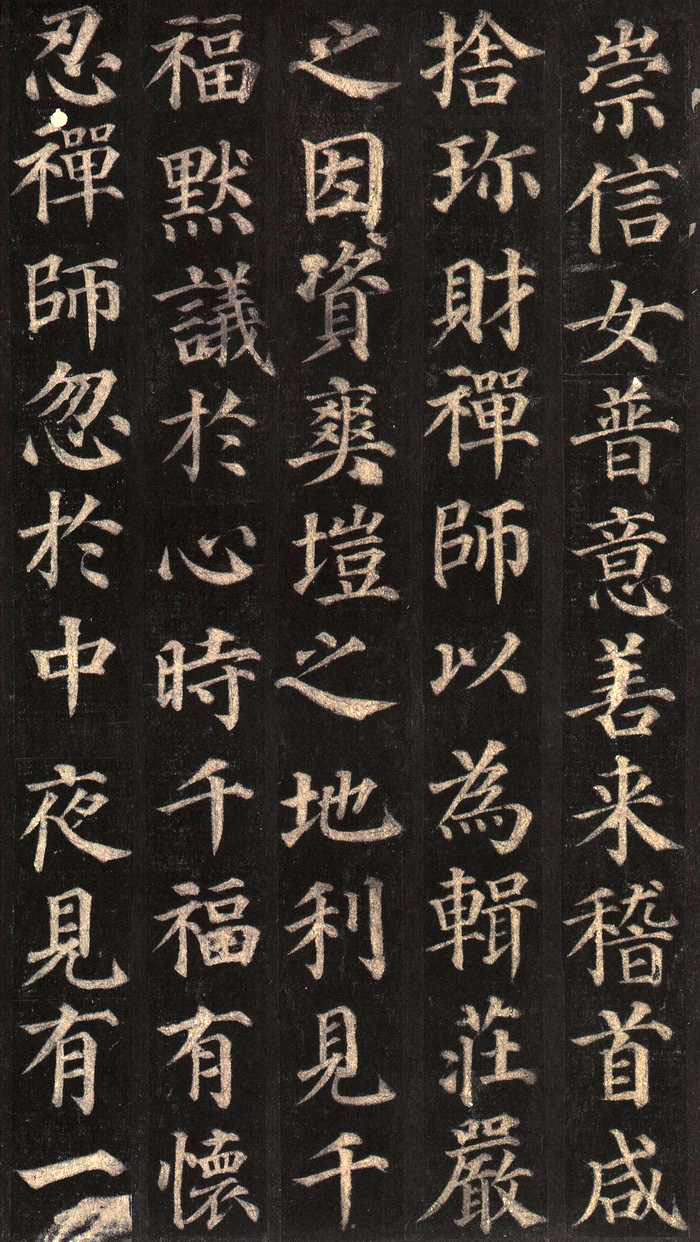 崇信女普意善来稽首咸
捨珎財禪師以為輯莊嚴
之因資爽塏之地利見千
福默議於心時千福有懷
忍禪師忽於中夜見有一